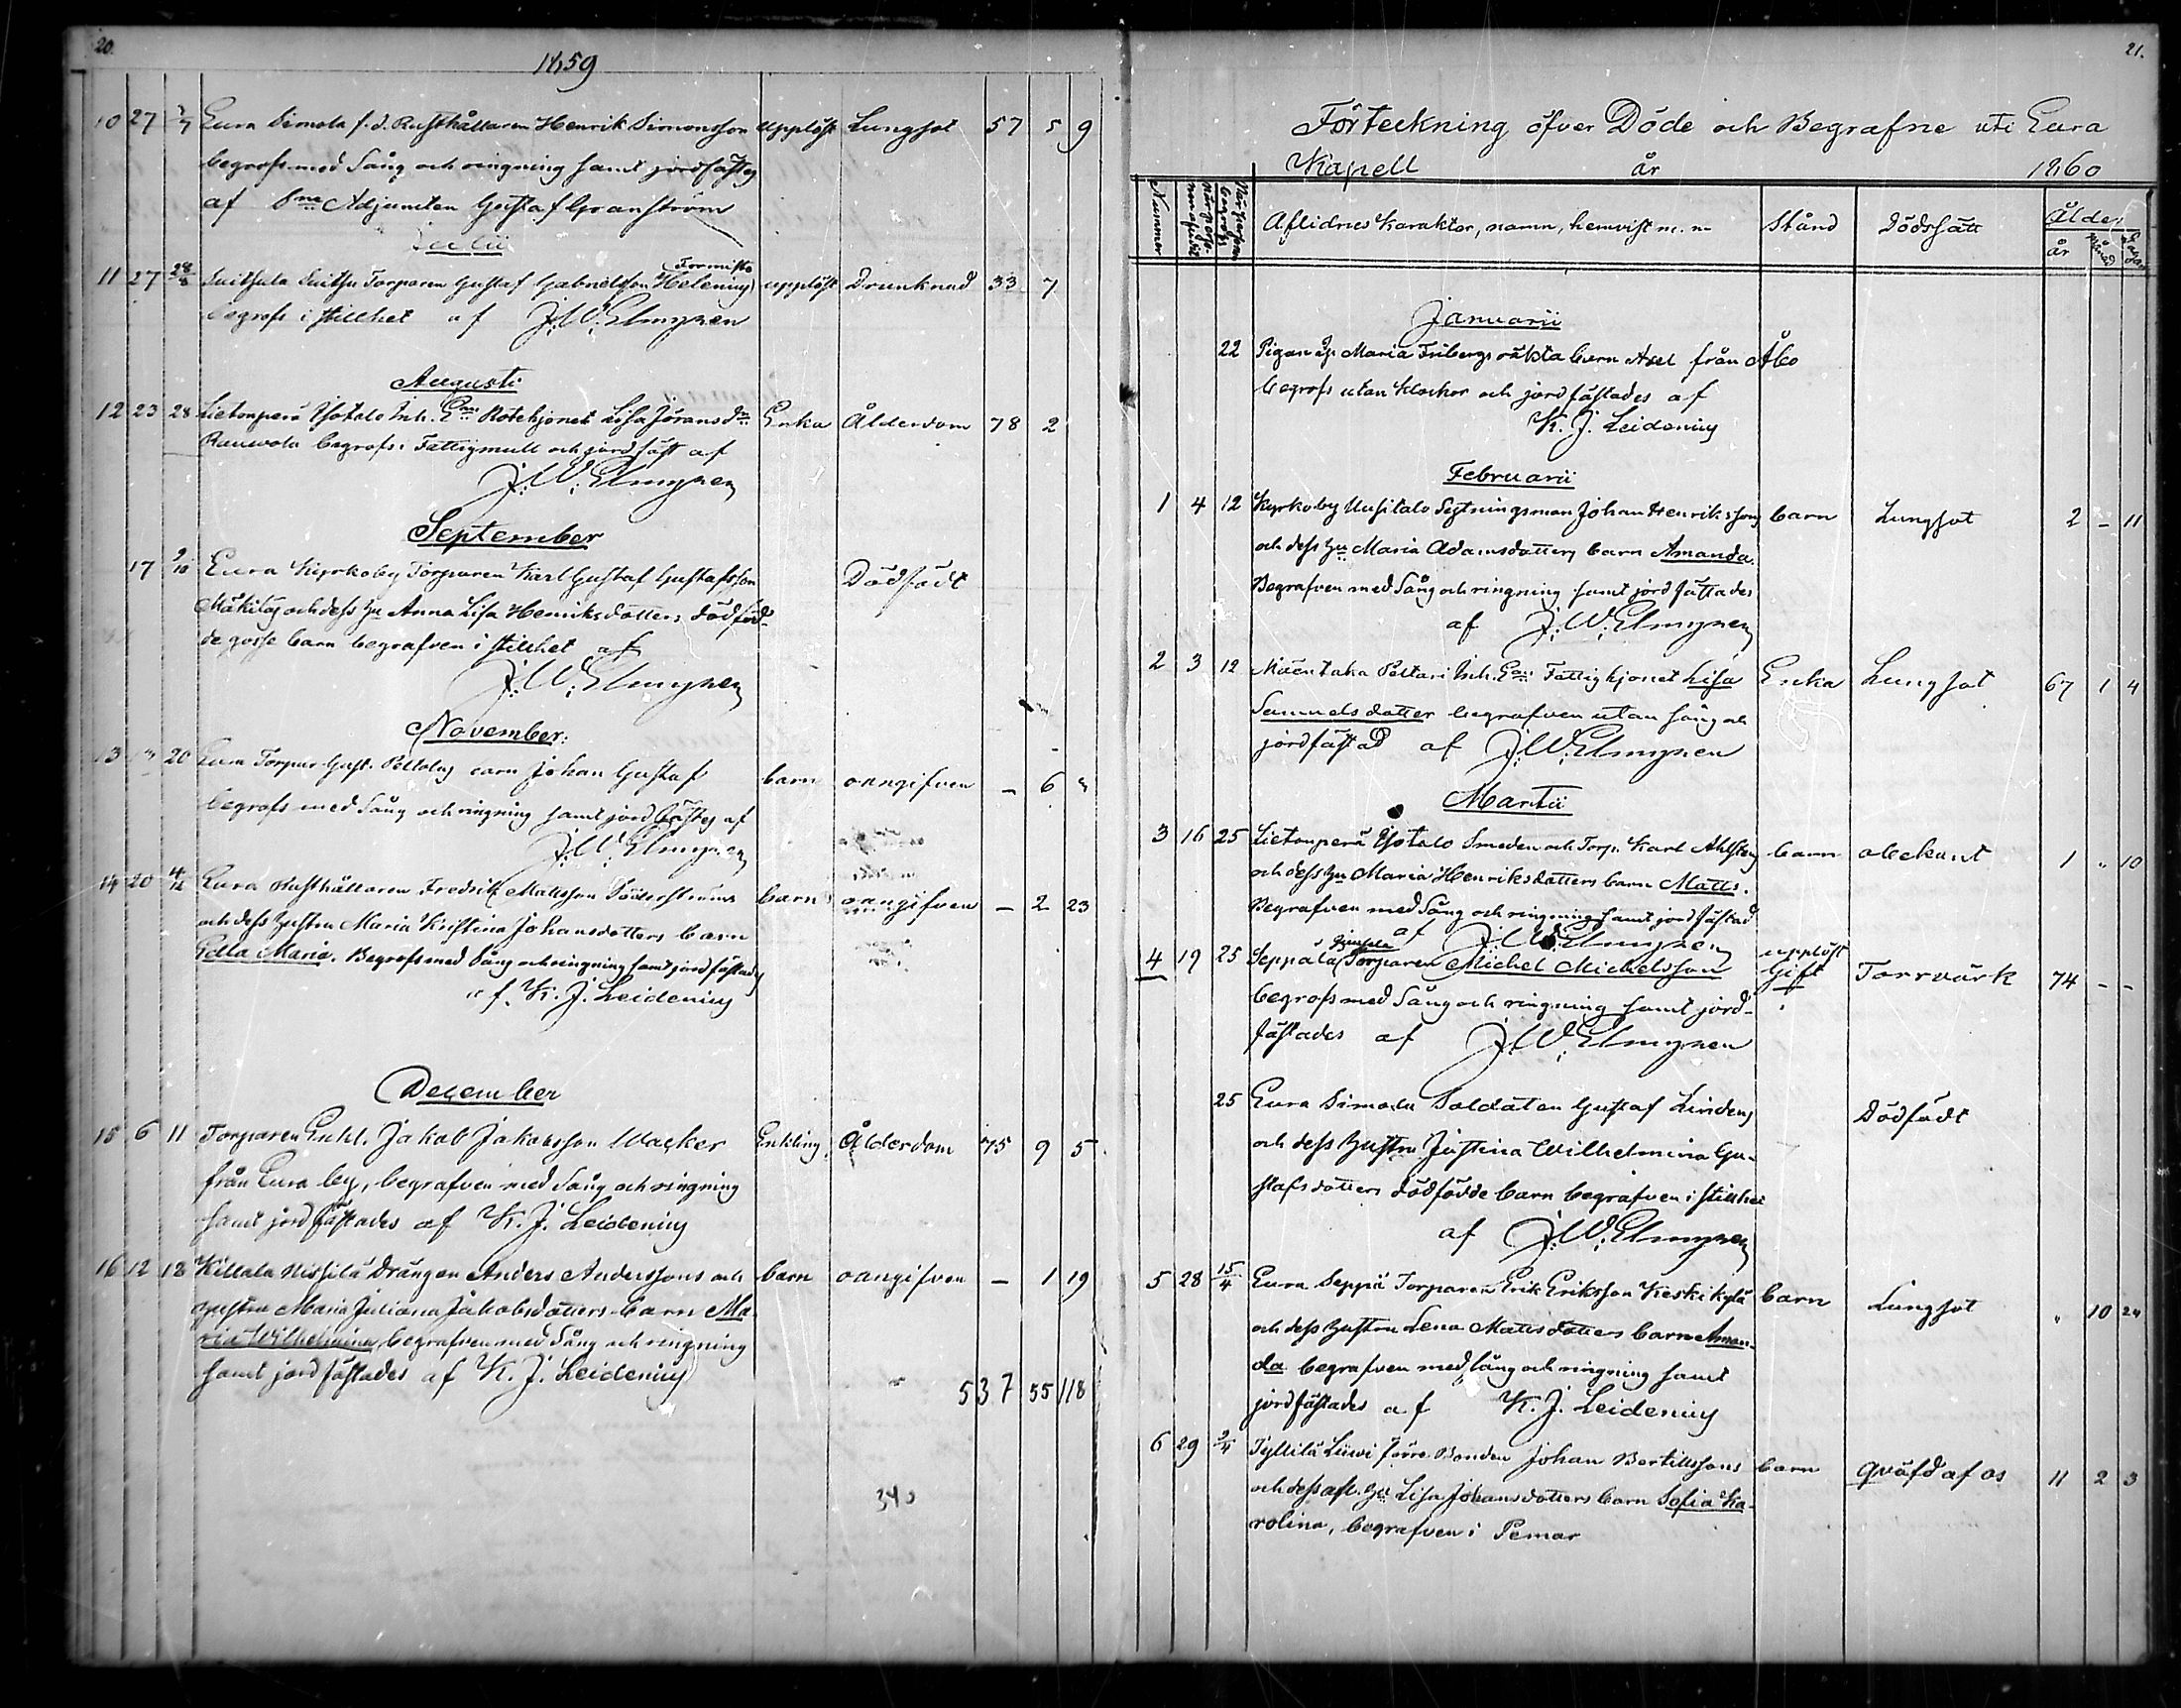 20.
1859
10 27 3/7 Eura Simola f.d. Rusthållaren Henrik Simonsson upplöst Lungsot 57 5 9
begrofs med Sång och ringning samt jordfästes
af Adjuncten Gustaf Granström
Julii
Formisto
11 27 28/8 Torparen Gustaf Gabrielsson Helenius upplöst Drunknad 33 7
begrofs i stillhet af J. W. Elmgren
Augusti
12 23 28 Lietsuperä Isotalo Inh. Enk. Rotehjonet Lisa Jöransdr Enka Ålderdom 78 2
begrofs i Fattigmull och jordfäst af
J. W. Elmgren
September
17 2/10 Eura Kyrkoby Torparen Karl Gustaf Gustafsson Dödfödt
Mäkiläs och dess hu Anna Lisa Henriksdotters dödföd-
de gosse barn begrafven i stillhet af
J. W. Elmgren
November.
13 " 20 Eura Torpar Gust. barn Johan Gustaf barn oangifven – 6 "
begrofs med Sång och ringning samt jordfästes af
J. W. Elmgren
14 20 4/12 Eura Rusthållaren Fredrik Mattsson Söderströms barn oangifven – 2 23
och dess hustru Maria Kristina Johansdotters barn
Maria. Begrofs med Sång och ringning samt jordfästades
af K. J. Leidenius
December
15 6 11 Torparen Enkl. Jakob Jakobsson Wacker Enkling Ålderdom 75 9 5
från Eura by, begrafven med Sång och ringning
samt jordfästades af K. J. Leidenius
16 12 18 Killala Nissilä Drängen Anders Anderssons och barn oangifven – 1 19
hustru Maria Juliana Jakobsdotters barn Ma-
ria Wilhelmina, begrafven med Sång och ringning
samt jordfästades af K. J. Leidenius
537 55 118
340
21.
Förteckning öfver Döde och Begrafne uti Eura
Kapell år 1860
Nummer Aflidnes karakter, namn, hemvist m. m Stånd Dödssätt Ålder
år månad dagar
Januarii
22 Pigan Maria Fribergs oäkta barn Axel från Åbo
begrofs utan klockor och jordfästades af
K. J. Leidenius
Februarii
1 4 12 Kyrkoby Uusitalo Sytningsman Johan Henrikssons barn Lungsot 2 – 11
och dess hu Maria Adamsdotters barn Amanda.
Begrafven med Sång och ringning samt jordfästades
af J. W. Elmgren
2 3 12 Mäentaka Peltari Inh. Enk. Fattighjonet Lisa Enka Lungsot 67 1 4
Samuelsdotter begrafven utan sång och
jordfästad af J. W. Elmgren
Martii
3 16 25 Lietsuperä Isotalo Smeden och Torp. Karl Ahlstens barn obekant 1 " 10
och dess hu Maria Henriksdotters barn Matts.
Begrafven med Sång och ringning samt jordfästad
af J. W. Elmgren
4 19 25 Seppälä Torparen Michel Michelsson upplöst Gift Torrvärk 74 – –
begrofs med Sång och ringning samt jord-
fästades af J. W. Elmgren
25 Eura Simola Soldaten Gustaf Lindens Dödfödt
och dess hustru Justina Wilhelmina Gu-
stafsdotters dödfödde barn begrafven i stillhet
af J. W. Elmgren
5 28 15/4 Eura Seppä Torparen Erik Eriksson Keskikylä barn Lungsot " 10 24
och dess hustru Lena Mattsdotters barn Aman-
da begrafven med sång och ringning samt
jordfästades af K. J. Leidenius
6 29 9/4 Tyllilä Liiwi förre Bonden Johan Bertilssons barn qväfd af os 11 2 3
och dess afl. hu Lisa Johansdotters barn Sofia Ka-
rolina, begrafven i Pemar